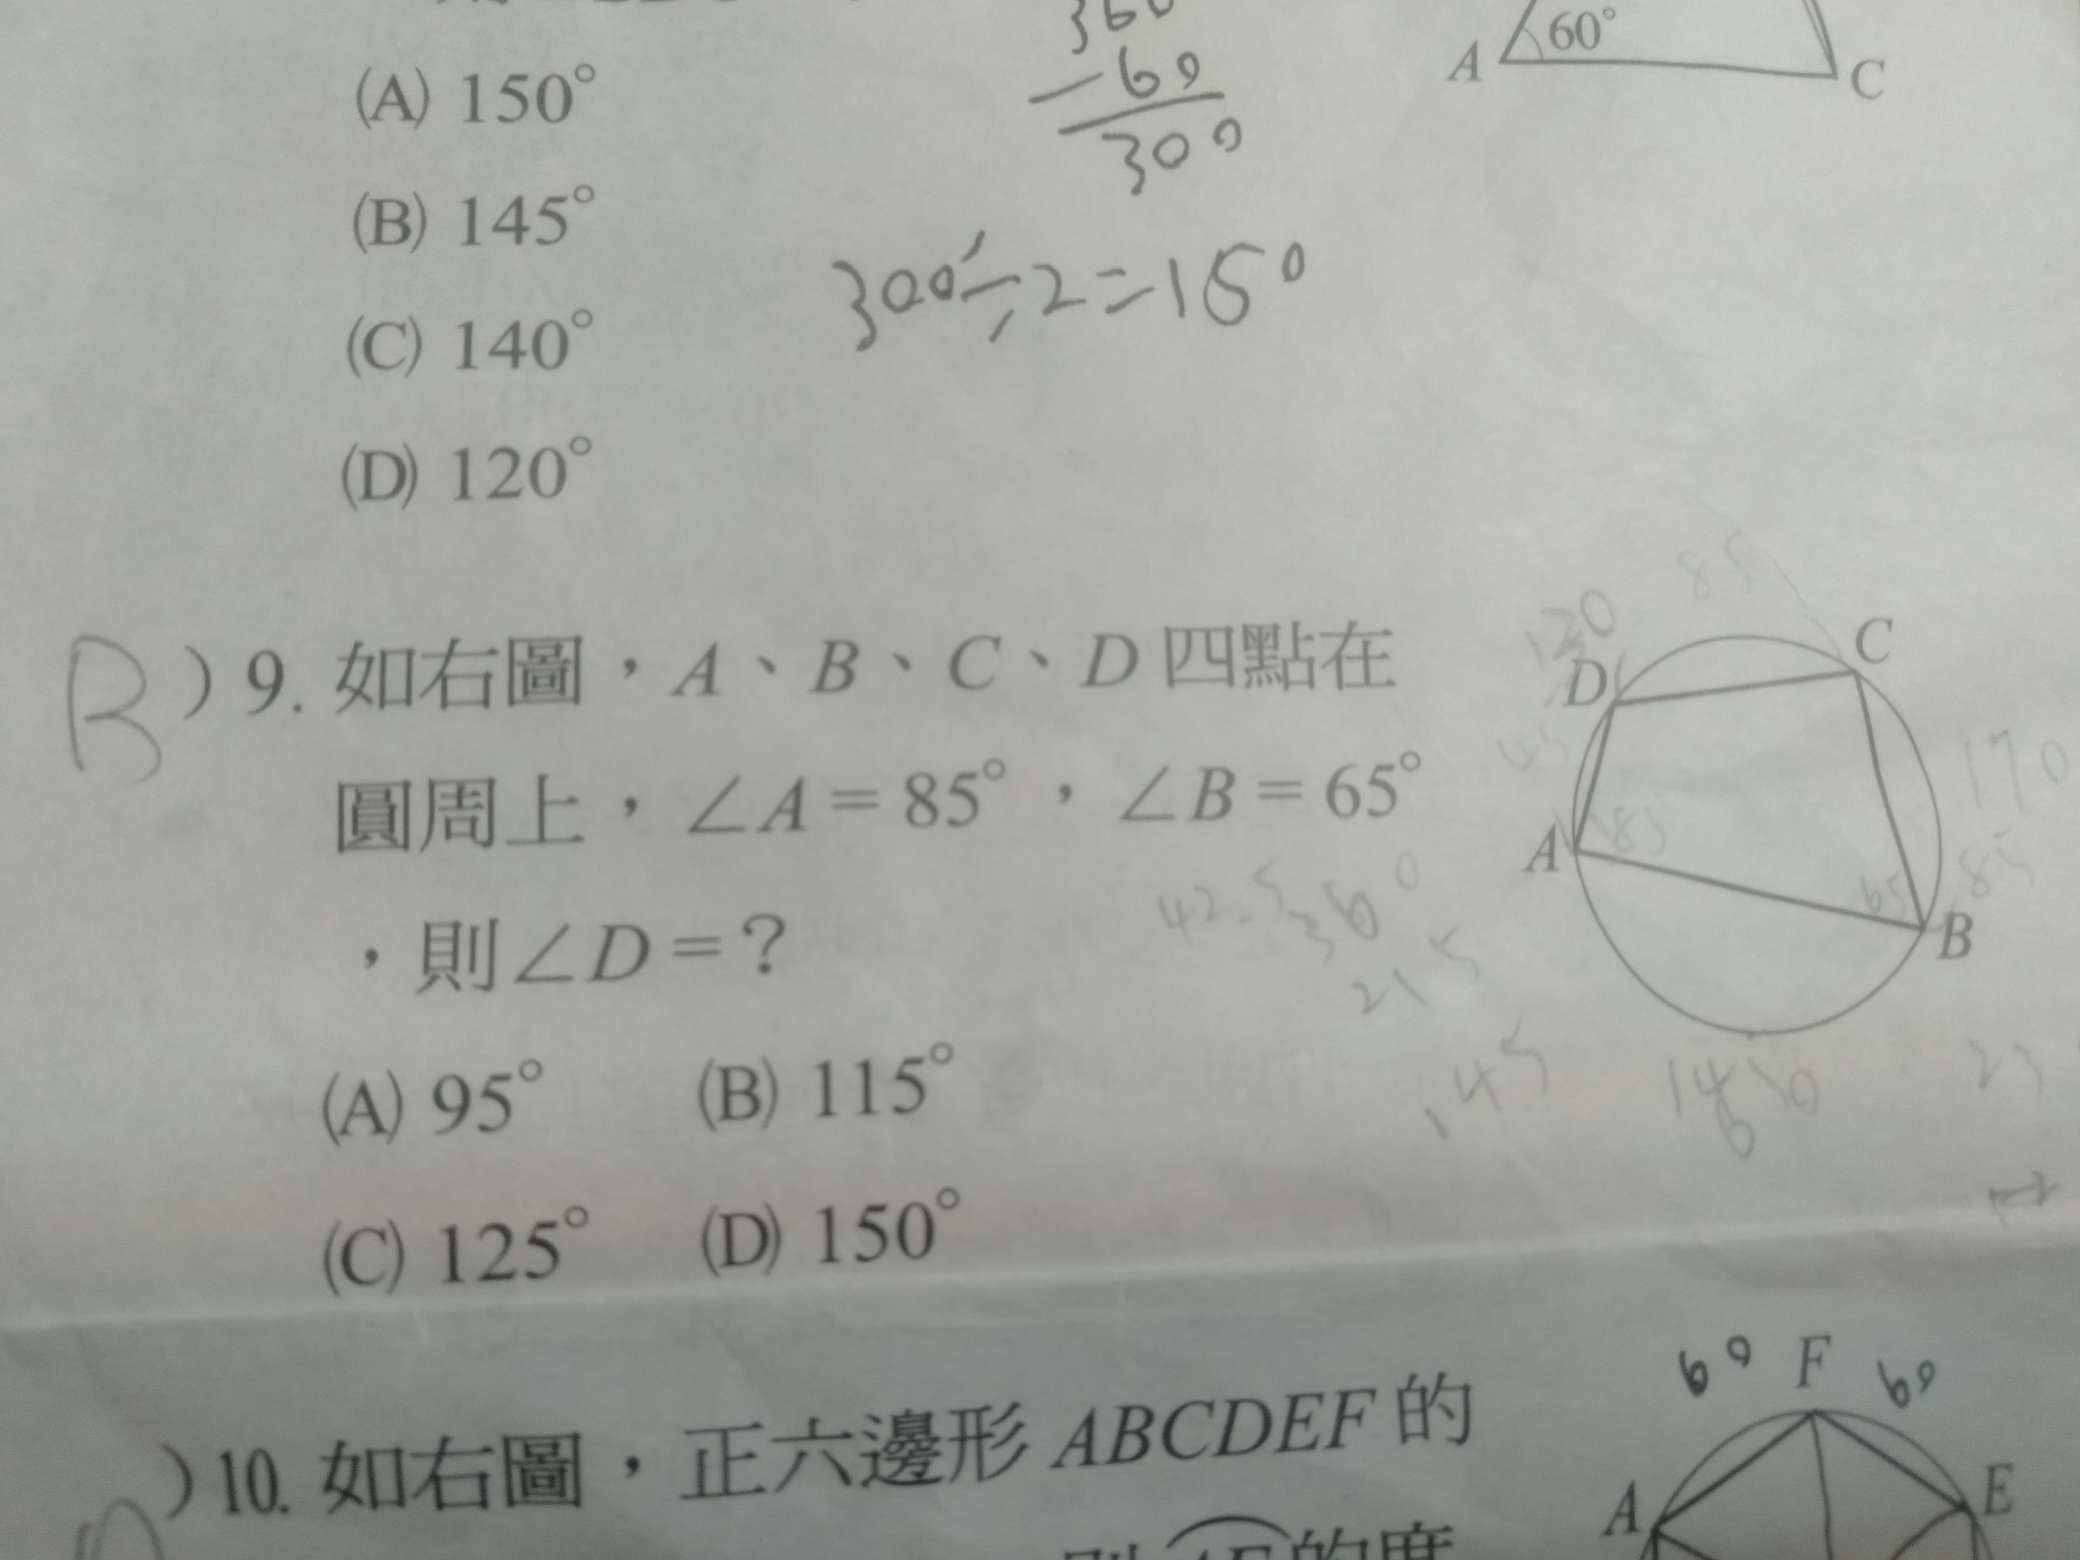 360
(A) 150°
- 60
60°
A
C
300
(B) 145°
300÷2=150
(C) 140°
(D) 120°
85
120
B ) 9. 如右圖，A、B、C、D 四點在
D
C
圓周上，∠A = 85°，∠B = 65°
45
170
A
85
65
85
B
42.5
360
215
，則∠D = ?
(A) 95° (B) 115°
145
(C) 125° (D) 150°
60 F 60
)10. 如右圖，正六邊形 ABCDEF 的
A
E